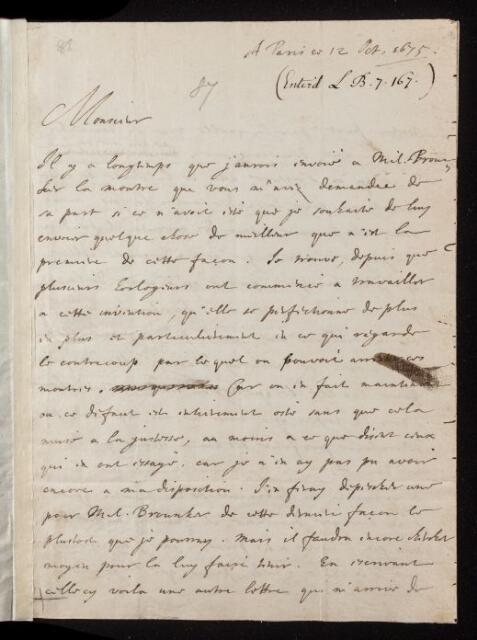 A Paris ce 12 Oct. 1675.
(Enter'd L. B. 7. 167.)
87
Monsieur
Il y a longtemps que j'aurois envoiè a Mil. Broun-
ker la montre que vous m'aviez demandee de
sa part si ce n'avoit estè que je souhaite de luy
envoier quelque chose de meilleur que n'est la
premiere de cette façon. Je trouve, depuis que
plusieurs horlogeurs ont commencè a travailler
a cette invention, qu'elle se perfectionne de plus
en plus et particulierement en ce qui regarde
le contrecoup par lequel on pouvoit ces
montres. Car on en fait maintenant
ou ce defaut est entierement ostè sans que cela
nuise a la justesse, au moins a ce que disent ceux
qui en ont essayè, car je n'en ay pas pu avoir
encore a ma disposition. J'en feray depescher une
pour Mil. Brounker de cette derniere façon le
plustost que je pourray. mais il faudra encore chercher
moyen pour la luy faire tenir. En escrivant
cellecy voila une autre lettre qui m'arrive de